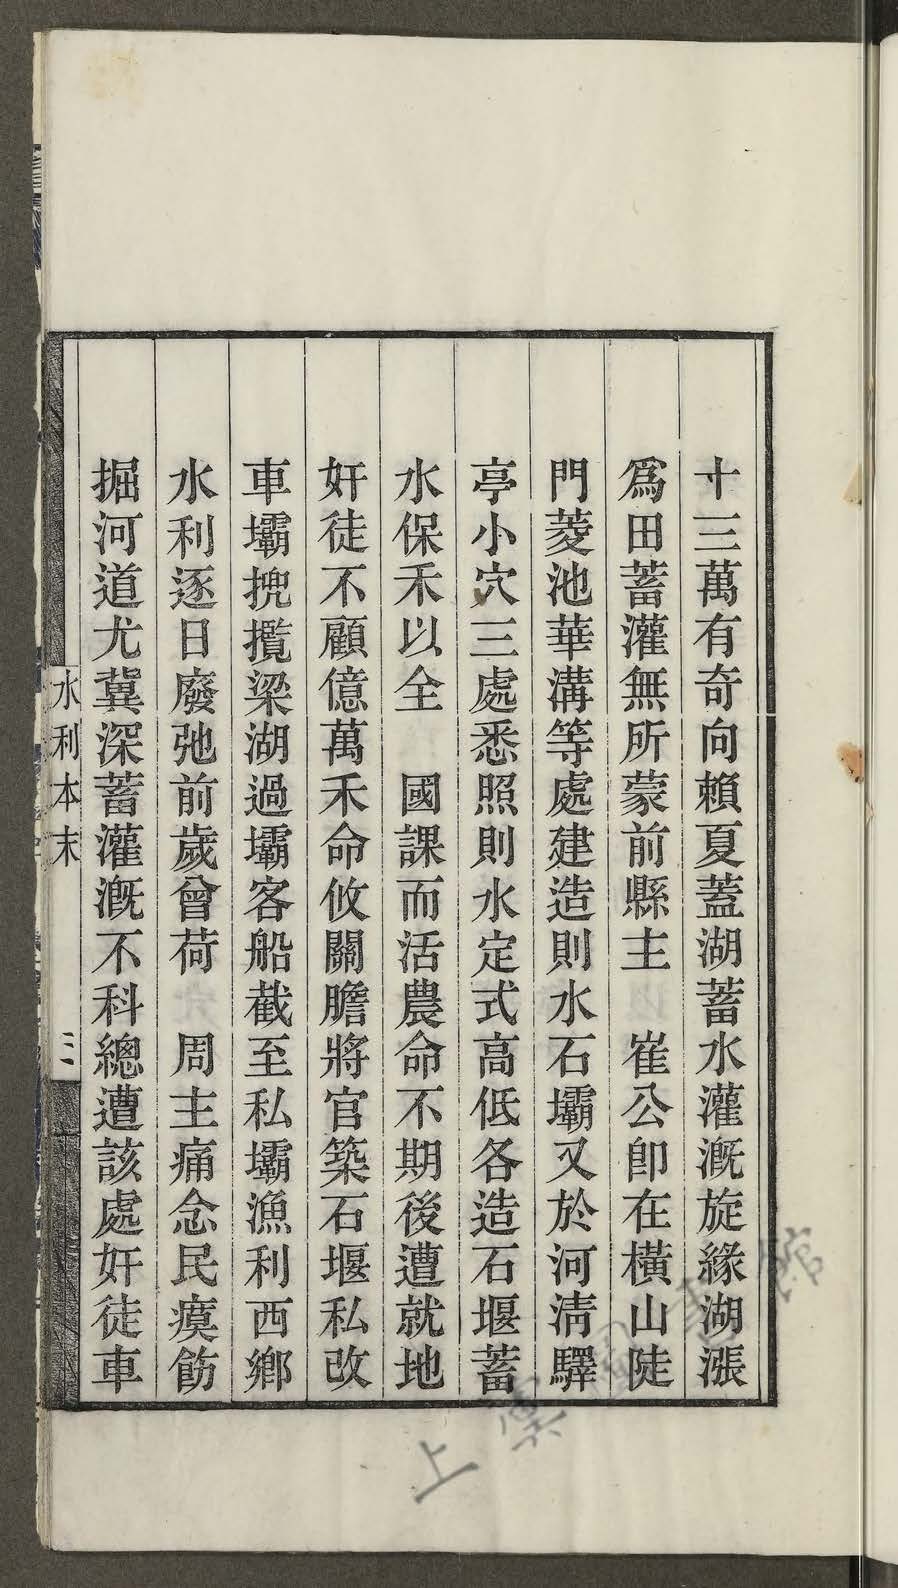 十三萬有奇向賴夏蓋湖蓄水灌漑旋緣湖漲
爲田蓄灌無所蒙前縣主　崔公卽在橫山陡
門菱池華溝等處建造則水石壩又於河淸驛
亭小穴三處悉照則水定式高低各造石堰蓄
水保禾以全　國課而活農命不期後遭就地
奸徒不顧億萬禾命攸關膽將官築石堰私改
車壩挩攬梁湖過壩客船截至私壩漁利西鄉
水利逐日廢弛前歲曾荷　周主痛念民瘼飭
掘河道尤冀深蓄灌漑不科總遭該處奸徒車
水利本末
三
上虞圖書館